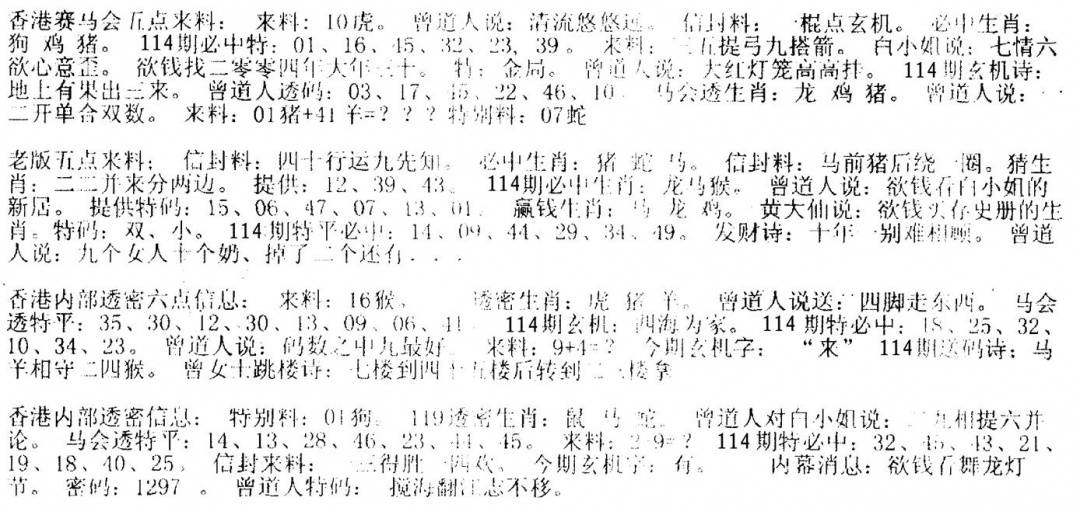 香港赛马会五点来料: 来料: 10虎。 曾道人说: 清流悠悠远。 信封料: 一棍点玄机。 必中生肖:
狗 鸡 猪。 114期必中特: 01、16、45、32、23、39。 来料: 三五提弓九搭箭。 白小姐说: 七情六
欲心意歪。 欲钱找二零零四年大年三十。 特: 金局。 曾道人说: 大红灯笼高高挂。 114期玄机诗:
地上有果出三来。 曾道人透码: 03、17、45、22、46、10 马会透生肖: 龙 鸡 猪。 曾道人说:
二开单合双数。 来料: 01猪+41羊=? ? ? 特别料: 07蛇
老版五点来料: 信封料: 四十行运九先知。 必中生肖: 猪 蛇 马。 信封料: 马前猪后绕一圈。猜生
肖: 二二并来分两边。 提供: 12、39、43。 114期必中生肖: 龙马猴。 曾道人说: 欲钱看白小姐的
新居。 提供特码: 15、06、47、07、13、01 赢钱生肖: 马 龙 鸡。 黄大仙说: 欲钱买存史册的生
肖。特码: 双、小。 114期特平必中: 14、09、44、29、34、49。 发财诗: 十年一别难相顾。 曾道
人说: 九个女人十个奶、掉了二个还有...
香港内部透密六点信息: 来料: 16猴、 透密生肖: 虎 猪 羊。 曾道人说送: 四脚走东西。 马会
透特平: 35、30、12、30、13、09、06、41 114期玄机: 四海为家。 114期特必中: 18、25、32、
10、34、23。 曾道人说: 码数之中九最好 来料: 9+4=? 今期玄机字: “来” 114期送码诗: 马
羊相守二四猴。 曾女士跳楼诗: 七楼到四十五楼后转到二三楼拿
香港内部透密信息: 特别料: 01狗。 119透密生肖: 鼠 马 蛇。 曾道人对白小姐说: 九相提六并
论。 马会透特平: 14、13、28、46、23、44、45。 来料: 2-9=? 114期特必中: 32、45、43、21、
19、18、40、25。 信封来料: 三得胜一四欢。 今期玄机字: 有。 内幕消息: 欲钱看舞龙灯
节。 密码: 1297 。 曾道人特码: 搅海翻江志不移。